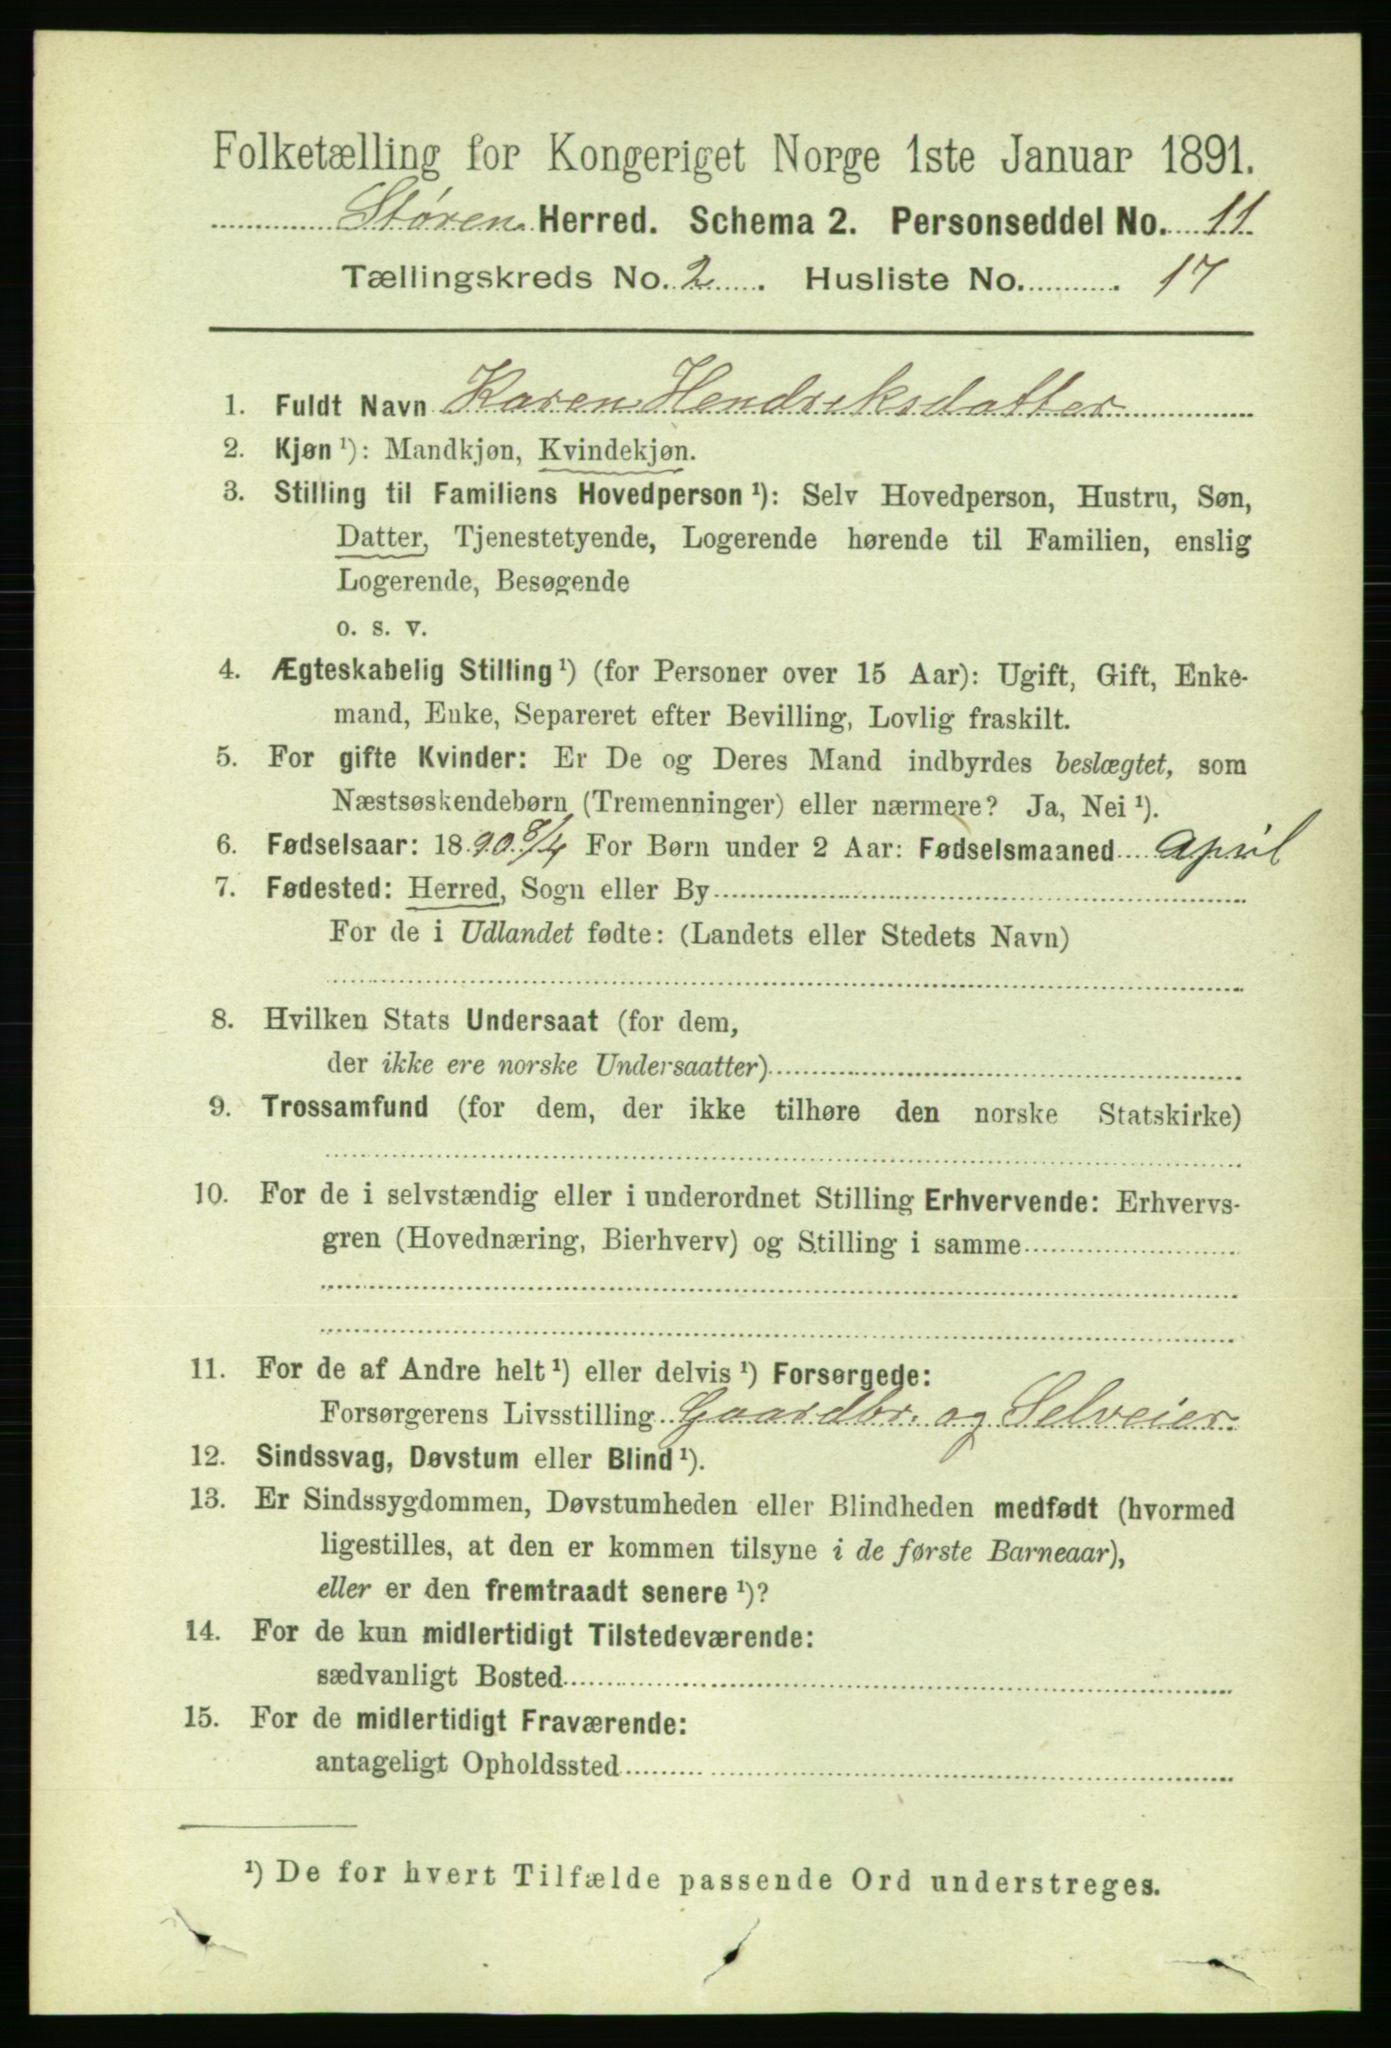 Folketælling for Kongeriget Norge 1ste Januar 1891.
Støren Herred. Schema 2. Personseddel No. 11
Tællingskreds No. 2. Husliste No. 17
1. Fuldt Navn Karen Hendriksdatter
2. Kjøn ¹): Mandkjøn, Kvindekjøn.
3. Stilling til Familiens Hovedperson ¹): Selv Hovedperson, Hustru, Søn,
Datter, Tjenestetyende, Logerende hørende til Familien, enslig
Logerende, Besøgende
o. s. v.
4. Ægteskabelig Stilling ¹) (for Personer over 15 Aar): Ugift, Gift, Enke-
mand, Enke, Separeret efter Bevilling, Lovlig fraskilt.
5. For gifte Kvinder: Er De og Deres Mand indbyrdes beslægtet, som
Næstsøskendebørn (Tremenninger) eller nærmere? Ja, Nei ¹).
6. Fødselsaar: 1890 8/4 For Børn under 2 Aar: Fødselsmaaned April
7. Fødested: Herred, Sogn eller By
For de i Udlandet fødte: (Landets eller Stedets Navn)
8. Hvilken Stats Undersaat (for dem,
der ikke ere norske Undersaatter)
9. Trossamfund (for dem, der ikke tilhøre den norske Statskirke)
10. For de i selvstændig eller i underordnet Stilling Erhvervende: Erhvervs-
gren (Hovednæring, Bierhverv) og Stilling i samme
11. For de af Andre helt ¹) eller delvis ¹) Forsørgede:
Forsørgerens Livsstilling Gaardbr. og Selveier.
12. Sindssvag, Døvstum eller Blind ¹).
13. Er Sindssygdommen, Døvstumheden eller Blindheden medfødt (hvormed
ligestilles, at den er kommen tilsyne i de første Barneaar),
eller er den fremtraadt senere ¹)?
14. For de kun midlertidigt Tilstedeværende:
sædvanligt Bosted
15. For de midlertidigt Fraværende:
antageligt Opholdssted
¹) De for hvert Tilfælde passende Ord understreges.